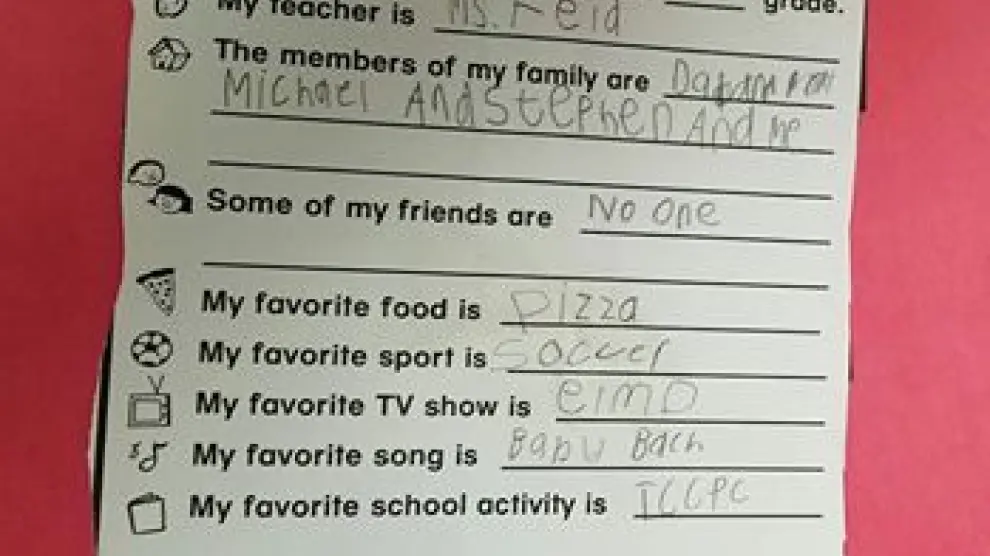 My teacher is Ms. Reid grade.
The members of my family are
Michael And Stephen And me
Some of my friends are No one
My favorite food is pizza
My favorite sport is Soccer
My favorite TV show is elmo
My favorite song is
My favorite school activity is